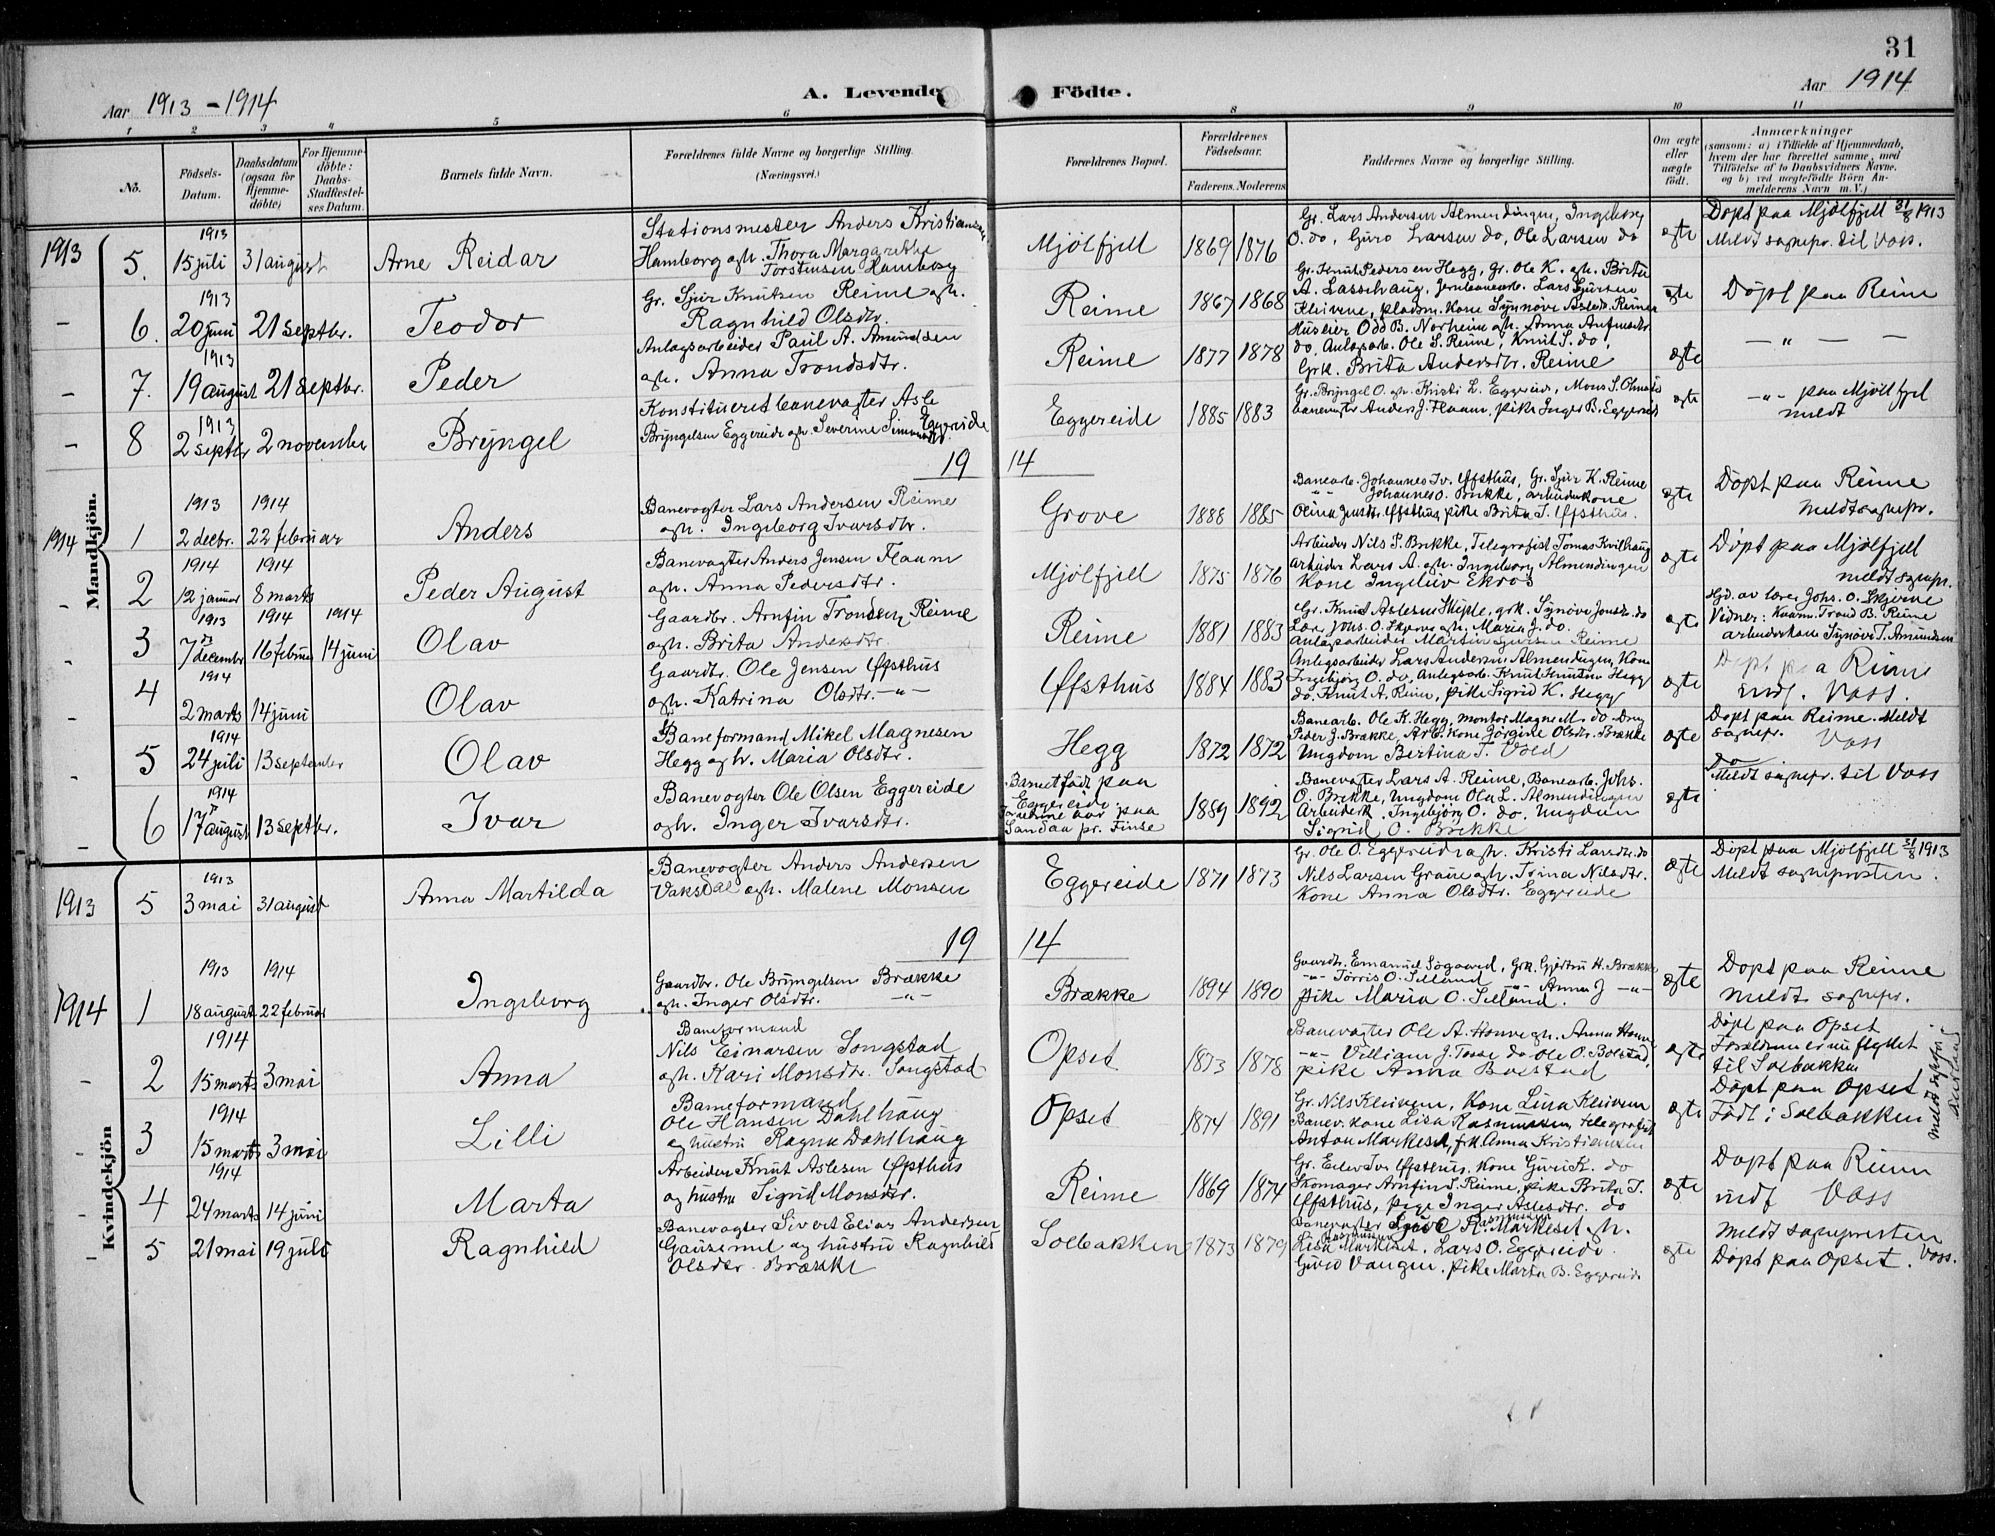 31
Aar 1913-1914
A. Levende Födte.
Aar 1914
1 2 3 4 5 6 8 9 10 11
No.
Födsels-Datum.
Daabsdatum (ogsaa for Hjemme-döbte)
For Hjemme-döbte: Daabs-Stadfæstelses Datum.
Barnets fulde Navn.
Forældrenes fulde Navne og borgerlige Stilling. (Næringsvei.)
Forældrenes Bopæl.
Forældrenes Födselsaar.
Faderens. Moderens.
Faddernes Navne og borgerlige Stilling.
Om ægte eller uægte födt.
Anmærkninger
(saasom: a) i Tilfælde af Hjemmedaab, hvem der har forrettet samme, med Tilföielse af to Daabsvidners Navne. og b) ved uægtefödte Börn Anmelderens Navn m. V.)
Mandkjön.
1913
5. 1913 15 juli 31 august Arne Reidar
Stationsmester Anders Kristiansen
Hamborg og h. Thora Margrethe
Torstensen Hamborg
Mjölfjell 1869 1876
Gr. Lars Andersen Almendingen, Ingeborg
O. do, Guro Larsen do, Ole Larsen do
ægte
Döpt paa Mjölfjell 31/8 1913
Meldt sognepr. til Voss.
6. 1913 20 juni 21 septbr. Teodor
Gr. Sjur Knutsen Reime og h.
Ragnhild Olsdtr.
Reime 1867 1868
Gr. Knut Pedersen Hegg, Gr. Ole K. og h. Brita
A. Lasschaug, Jernbanearb. Lars Sjursen
Kleivene, pladsm. Kone Synnöve Aslesd. Reime
ægte
Döpt paa Reime
7. 1913 19 august 21 septbr. Peder
Anlagsarbeider Paul A. Amundsen
og h. Anna Trondsdtr.
Reime 1877 1878
Husleier Odd B. Norheim og h. Anna
do, Anlagsarb. Ole S. Reime, Knut S. do,
Grk. Brita Andersdtr. Reime
ægte
— " — —
8 1913 2 septbr 2 november Bryngel
Konstitueret banevogter Asle
Bryngelsen Eggereide og h. Severine Simonsdtr. Eggereide
Eggereide 1885 1883
Gr. Bryngel O. og h. Kristi L. Eggereide, Mons S.
banevogter Anders J. Flaam, pike Inger B. Eggereide
ægte
—"— paa Mjölfjel
meldt
19 14
1914
1 1913 2 decbr. 1914 22 februar Anders
Banevogter Lars Andersen Reime
og h. Ingeborg Ivarsdtr.
Grove 1888 1885
Banearb. Johannes Iv. Öfsthus, Gr. Sjur K. Reime
" Johannes O. Brekke, arbeiderkone
Olina Öfsthus, pike Brita I. Öfsthus.
ægte
Döpt paa Reime
Meldt sognepr.
2 1914 12 januar 1914 8 marts Peder August
Banevogter Anders Jensen Flaam
og h. Anna Pedersdtr.
Mjölfjell 1875 1876
Arbeider Nils S. Brekke, Telegrafist Tomas Kvilhaug
arbeider Lars A. og h. Ingeborg Almendingen
Kone Ingeliv Ekroo
ægte
Döpt paa Mjölfjell
meldt sognepr.
3 1913 7de decembr 1914 16 februar 1914 14 juni Olav
Gaardbr. Arnfin Trondsen Reime
og h. Brita Andersdtr.
Reime 1881 1883
Gr. Knut Aslesen Skiple, grk. Synöve Jonsdtr. do
Lær. Johs. O. Skjerve og h. Maria J. do.
Anlagsarbeider Martin Sjursen Reime
ægte
Hjd. av lærer Johs. O. Skjerve
Vidner: Kaarm. Trond B. Reime
arbeiderkone Synöve T. Amundsen
4 1914 2 marts 14 juni Olav
Gaardbr. Ole Jensen Öfsthus
og h. Katrina Olsdtr. —"—
Öfsthus 1884 1883
Anlegsarbeider Lars Andersen Almendingen, Kone
Ingebjörg O. do, Anlegsarb. Knut Knutsen Hegg
do. Knut A. Reime, pike Sigrid K. Hegg
ægte
Döpt paa Reime
indf. Voss.
5 1914 24 juli 13 september Olav
Baneformand Mikel Magnesen
Hegg og h. Maria Olsdtr.
Hegg 1872 1872
Banearb. Ole K. Hegg, montör Magne M. do. Dreng
Peder J. Brække, Arb. Kone Jörgine Olsdtr. Brække
Ungdom Bertina T. Vold
ægte
Döpt paa Reime. Meldt
sognepr. Voss
6 1914 17 august 13 septbr. Ivar
Banevogter Ole Olsen Eggereide
og h. Inger Ivarsdtr.
Barnet födt paa
Eggereide.
Forældrene bor paa
Sandaa pr. Finse
1889 1892
Banevogter Lars A. Reime, Banearb. Johs.
O. Brekke, Ungdom Ola L. Almendingen
Arbeiderk. Ingebjörg O. do, Ungdom
Sigrid O. Brekke
ægte
Do
Meldt sognepr. til Voss
Kvindekjön
1913
5 1913 3 mai 31 august Anna Martilda
Banevogter Anders Andersen
Vaksdal og h. Malene Monsen
Eggereide 1871 1873
Gr. Ole O. Eggereide og h. Kristi Larsdtr. do
Nils Larsen Graue og h. Trina Nilsdtr.
Kone Anna Olsdtr. Eggereide
ægte
Döpt paa Mjölfjell 31/8 1913
Meldt sognepresten.
19 14
1914
1 1913 18 august 1914 22 februar Ingeborg
Gaardbr. Ole Bryngelsen Brække
og h. Inger Olsdtr. —"—
Brække 1894 1890
Gaardbr. Emanuel Sögaard, Grk. Gjertru H. Brække
—"— Torris O. Selland —"— Anna J —"—
pike Maria O. Selland.
ægte
Döpt paa Reime
meldt sognepr.
2 1914 15 marts 3 mai Anna
Baneformand
Nils Einarsen Songstad
og h. Kari Monsdtr. Songstad
Opset 1873 1878
Banevogter Ole A. Honve og h. Anna Honve
—"— Villiam J. Tosse do Ole O. Bolstad,
pike Anna Bolstad
ægte
Döpt paa Opset
Forældrene er nu flyttet
til Solbakken
3 1914 15 marts 3 mai Lilli
Baneformand
Ole Hansen Dahlhaug
og hustru Ragna Dahlhaug
Opset 1874 1891
Gr. Nils Kleivene, Kone Lina Kleivene
Banev. kone Lisa Rasmussen, Telegrafist
Anton Markeset, frk. Anna Kristiansen
ægte
Döpt paa Opset
Födt i Solbakken
meldt sognepr. i Aurland
4 1914 24 marts 14 juni Marta
Arbeider Knut Aslesen Öpthus
og hustru Sigrid Monsdtr.
Reime 1869 1874
Gr. Eilev Iv. Öfsthus, Kone Guri K. do
Skomager Arnfin S. Reime, pike Brita I.
Öfsthus, pige Inger Aslesdtr. do
ægte
Döpt paa Reime
indf Voss
5 21 mai 19 juli Ragnhild
Banevogter Sivert Elias Andersen
Gausemel og hustru Ragnhild
Olsdtr. Brække
Solbakken 1873 1879
Banevogter R. Rasmussen Markeset og h.
Lisa Rasmussen Markeset, Lars O. Eggereide
Guro Vangen, pike Marta B. Eggereide
ægte
meldt sognepresten
Döpt paa Opset. Voss.